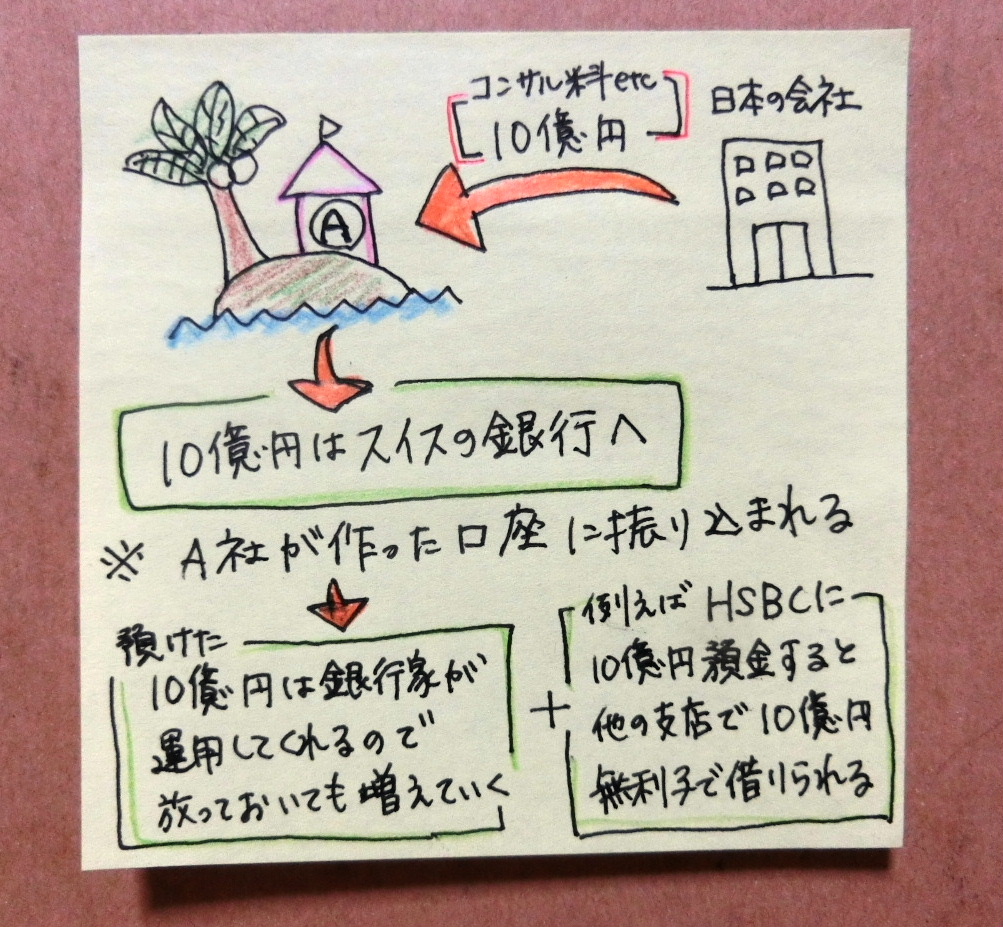 コンサル料etc
10億円
日本の会社
A
10億円はスイスの銀行へ
※ A社が作った口座に振り込まれる
預けた
10億円は銀行家が
運用してくれるので
放っておいても増えていく
+
例えばHSBCに
10億円預金すると
他の支店で10億円
無利子で借りられる